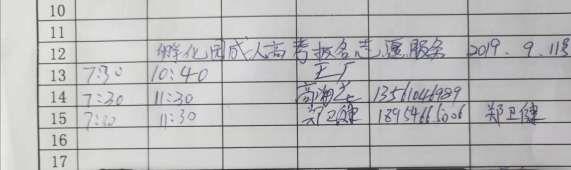 10
11
12 孵化园成人高考报名志愿服务 2019.9.11号
13 7:30 10:40 王广
14 7:30 11:30 13561046989
15 7:30 11:30 郑卫健 18954665006 郑卫健
16
17